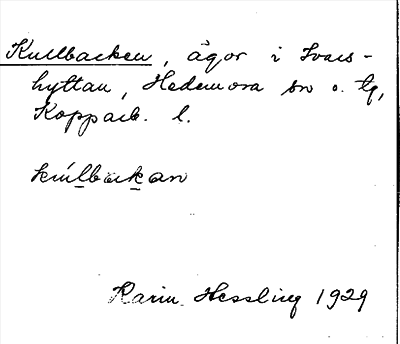 Kullbacken, ägor i Ivars-
hyttan, Hedemora sn o. tg,
Kopparb. l.
kúlbakan
Karin Hessling 1929